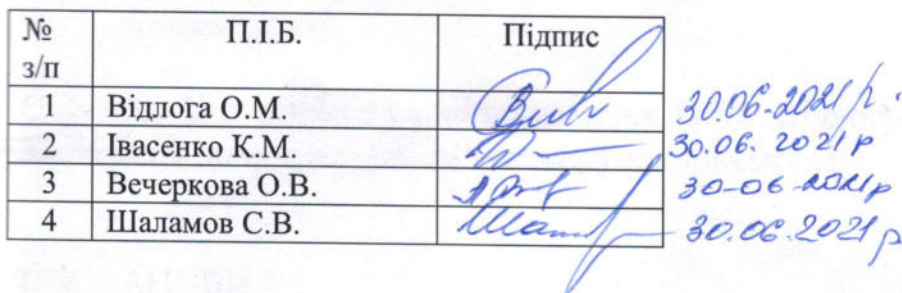 № з/п П.І.Б. Підпис
1 Відлога О.М 30.06.2021 р.
2 Івасенко К.М. 30.06.2021 р
3 Вечеркова О.В. 30-06-2021р
4 Шаламов С.В. 30.06.2021 р